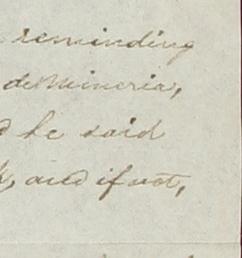 reminding
de Mineria,
he said
and if not,